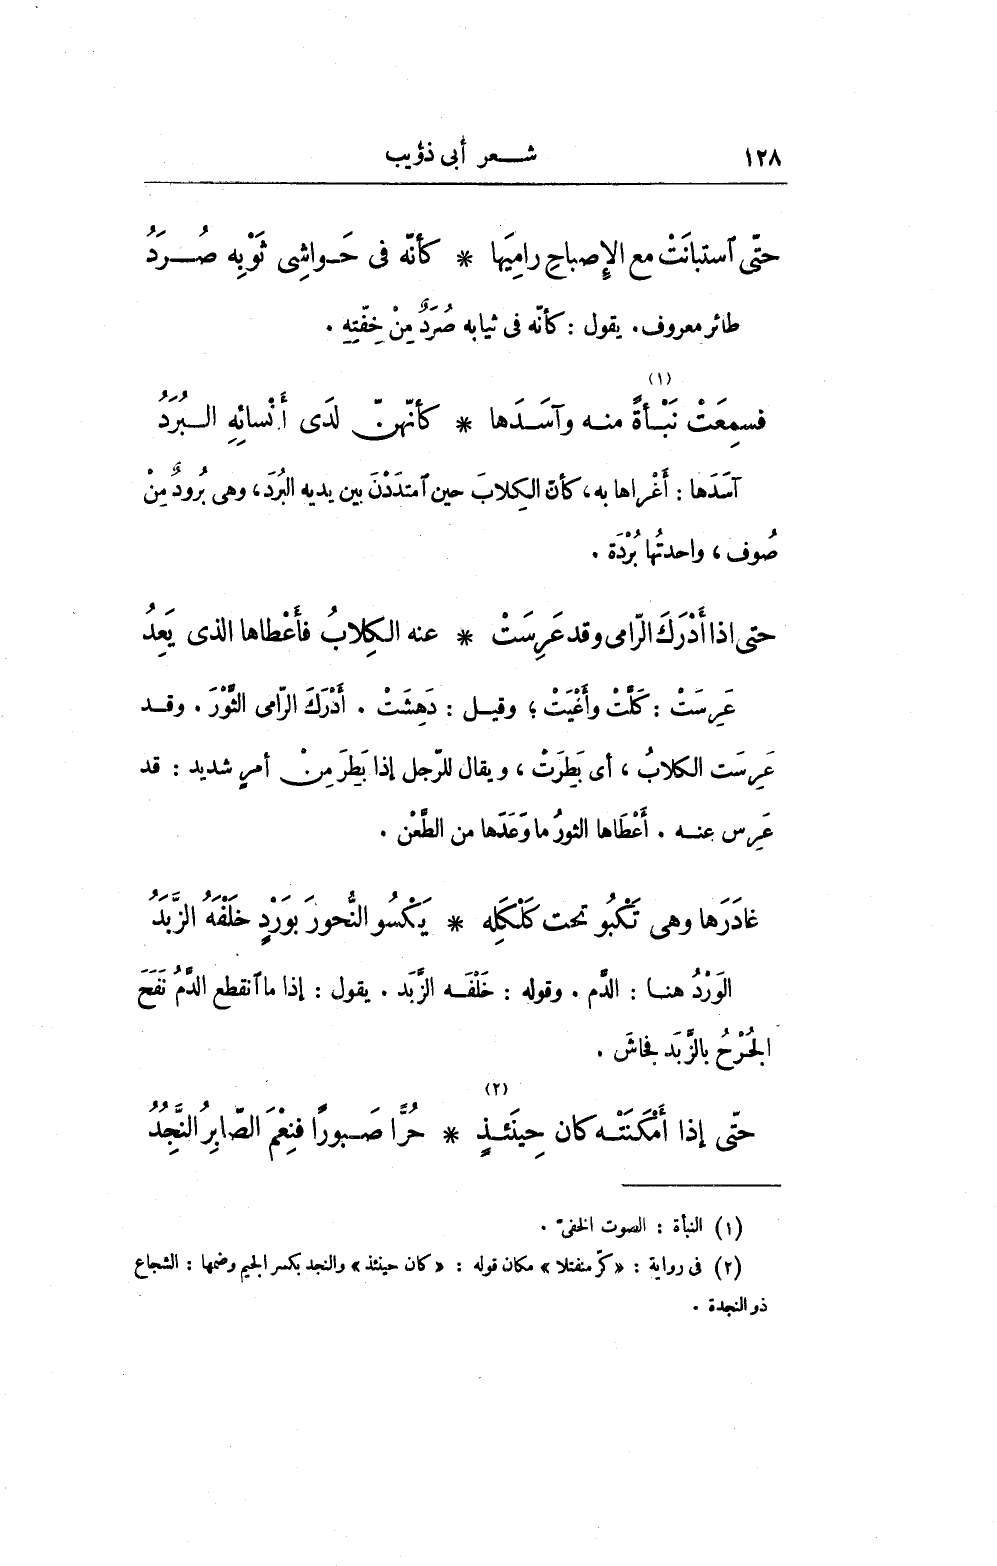 ١٢٨ شعر أبى ذؤيب
حتّى ٱستبانَتْ مع الإصباحِ رامِيَها * كأنّه فى حَواشِى ثَوْبِه صُرَدُ
طائر معروف. يقول : كأنّه فى ثيابه صُرَدٌ مِنْ خِفّتِهِ .
(١)
فسمِعَتْ نَبْأةً منه وآسَدَها * كأنّهنّ لَدَى أَنْسائِهِ البُرَدُ
آسَدَها : أَغْراها به، كأنّ الكِلابَ حين ٱمتدَدْنَ بين يديه البُرَد، وهى بُرودٌ مِنْ
صُوف ، واحدتُها بُرْدَة .
حتى اذا أَدْرَكَ الرّامى وقد عَرِسَتْ * عنه الكِلابُ فأَعْطاها الذى يَعِدُ
عَرِسَتْ : كَلَّتْ وأَعْيَتْ ؛ وقيل : دَهِشَتْ . أَدْرَكَ الرّامى الثَّوْرَ . وقد
عَرِسَت الكلابُ ، أى بَطِرَتْ ، ويقال للرّجل إذا بَطِرَ مِنْ أمرٍ شديد : قد
عَرِس عنه . أَعْطَاها الثورُ ما وَعَدَها من الطَّعْن .
غادَرَها وهى تَكْبُو تحت كَلْكَلِه * يَكْسُو النُّحورَ بوَرْدٍ خَلْفَهُ الزَّبَدُ
الوَرْدُ هنا : الدَّم . وقوله : خَلْفَه الزَّبَد . يقول : إذا ما ٱنقطع الدَّمُ نَفَحَ
الجُرْحُ بالزَّبَد فجاشَ .
(٢)
حتّى إذا أَمْكَنَتْه كان حِينَئذٍ * حُرًّا صَبورًا فنِعْمَ الصّابِرُ النَّجِدُ
(١) النبأة : الصوت الخفىّ .
(٢) فى رواية : «كرّ منفتلا» مكان قوله : «كان حينئذ» والنجد بكسر الجيم وضمها : الشجاع
ذو النجدة .